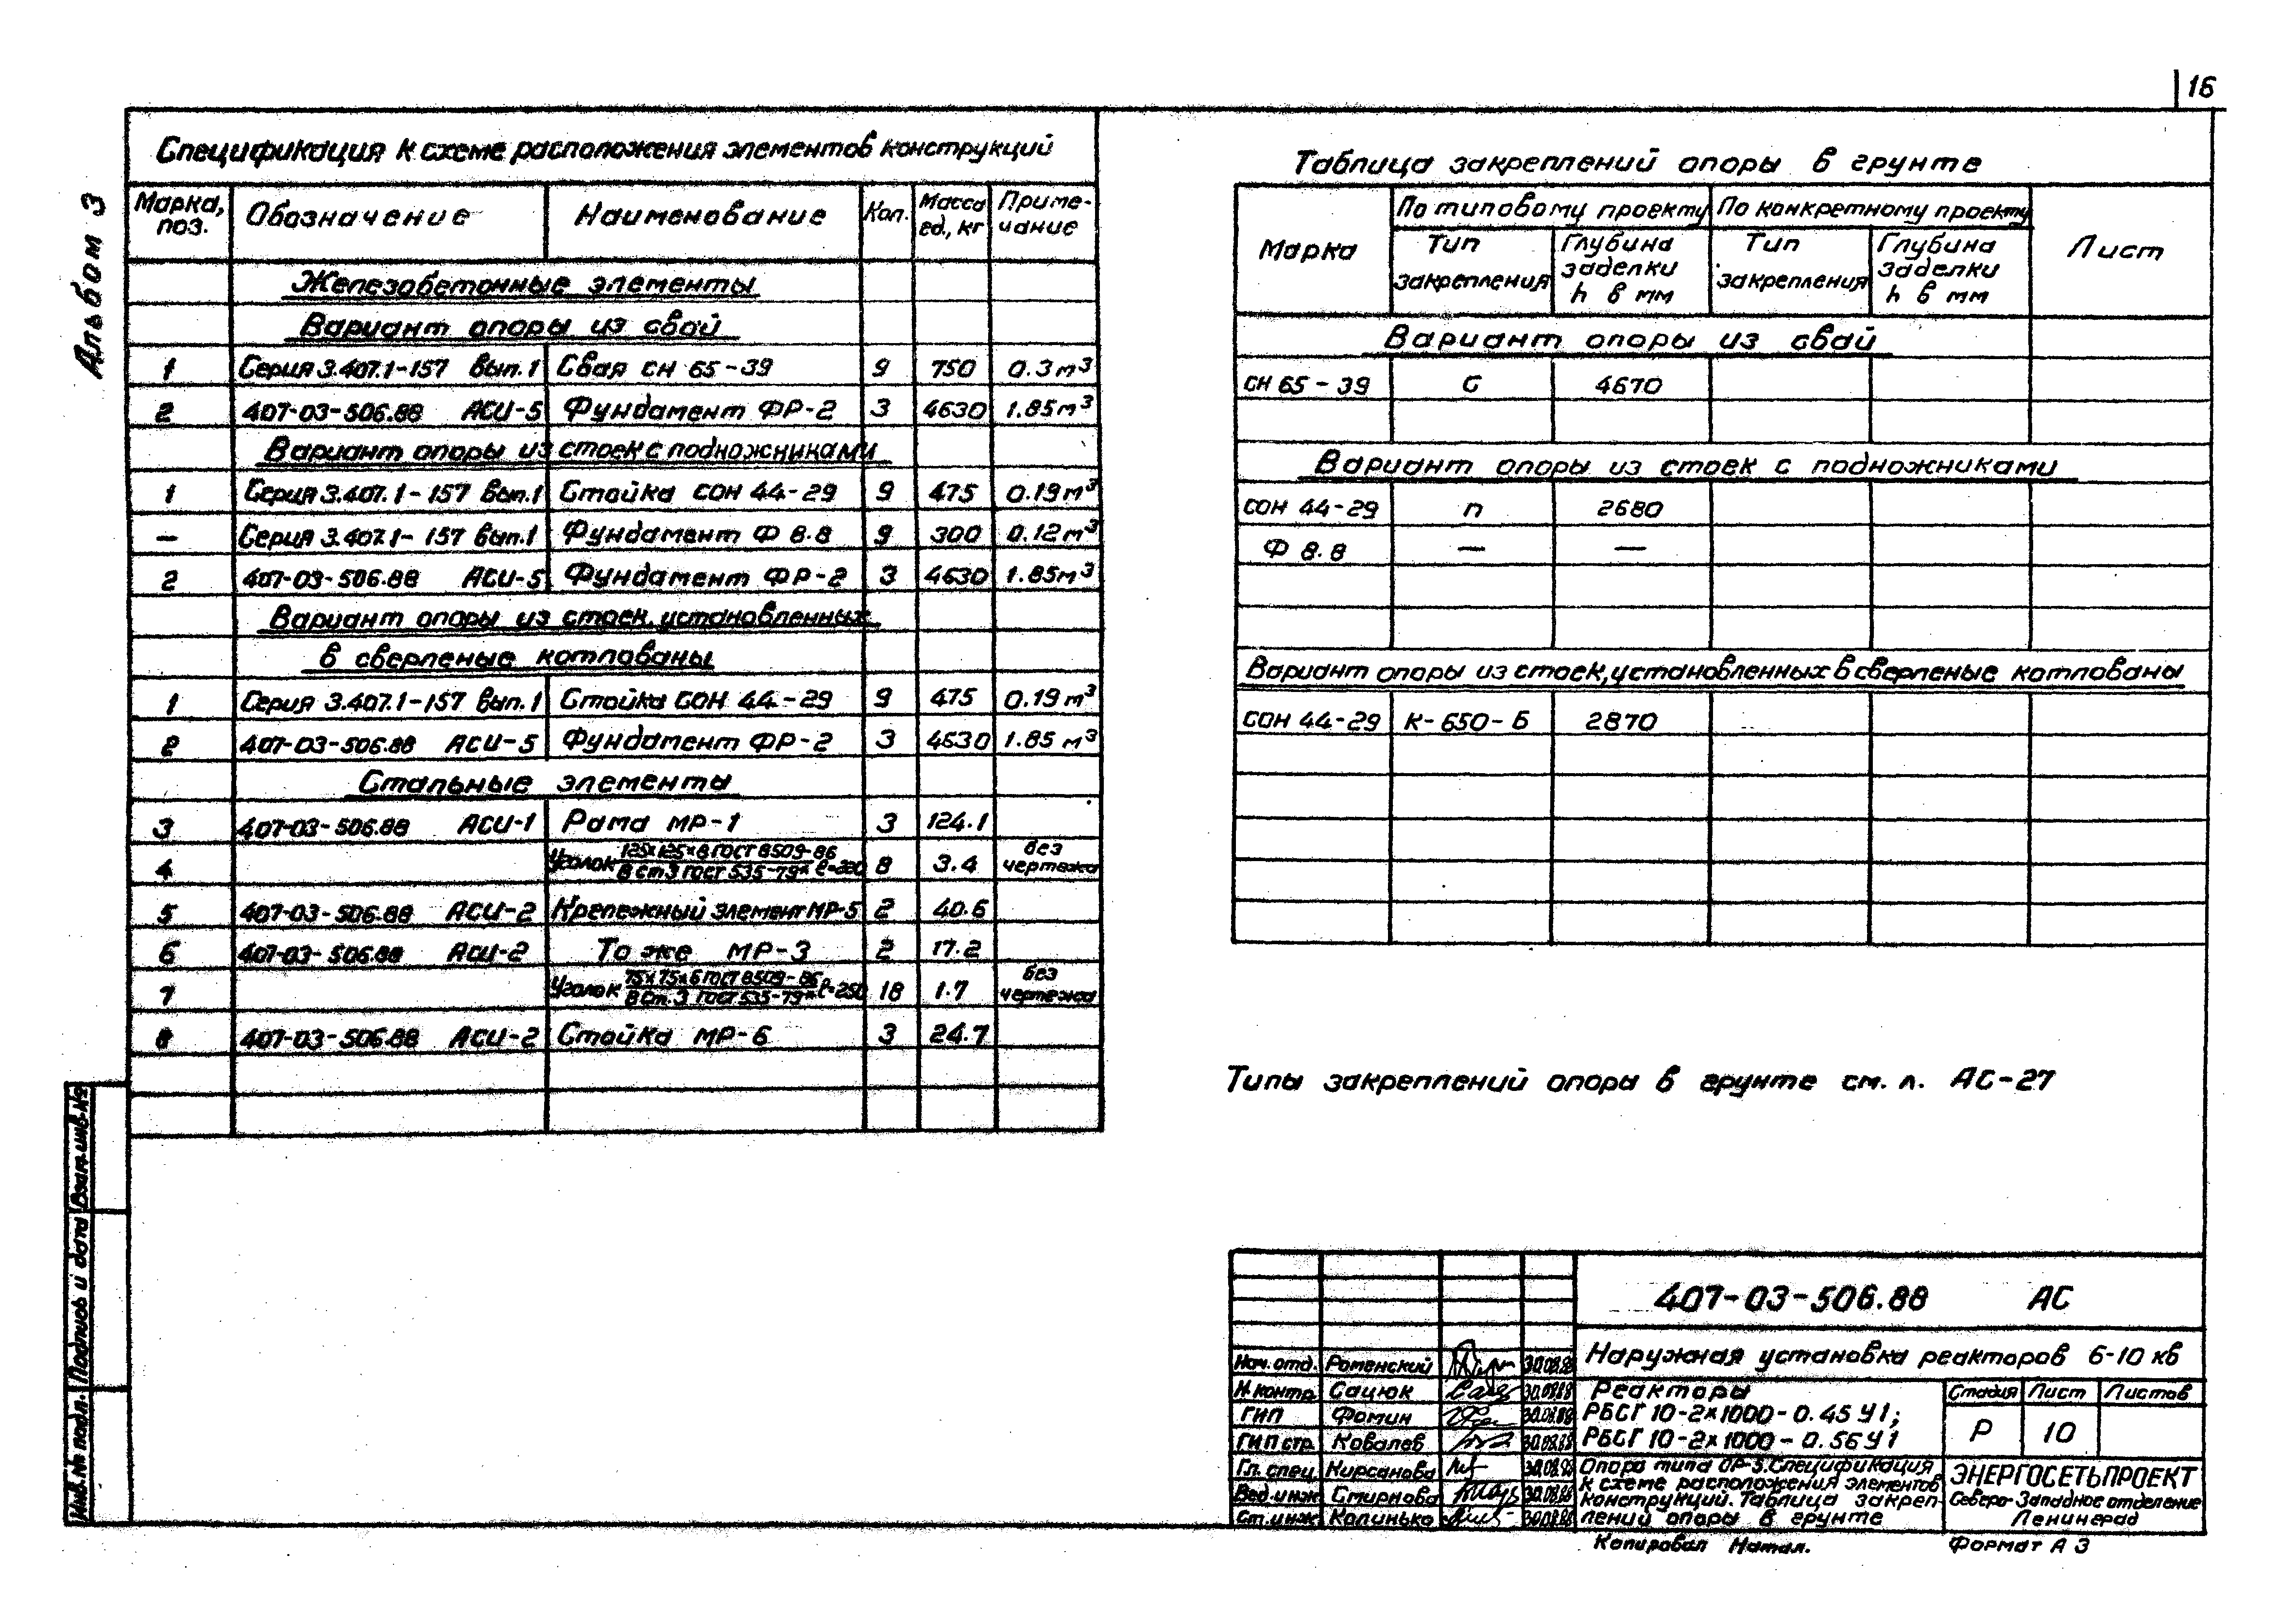 16
Альбом 3
Спецификация к схеме расположения элементов конструкций
Марка, поз. Обозначение Наименование Кол. Масса ед., кг Приме-чание
Железобетонные элементы
Вариант опоры из свай
1 Серия 3.407.1-157 вып.1 Свая СН 65-39 9 750 0.3 м³
2 407-03-506.88 АСИ-5 Фундамент ФР-2 3 4630 1.85 м³
Вариант опоры из стоек с подножниками
1 Серия 3.407.1-157 вып.1 Стойка СОН 44-29 9 475 0.19 м³
— Серия 3.407.1-157 вып.1 Фундамент Ф 8.8 9 300 0.12 м³
2 407-03-506.88 АСИ-5 Фундамент ФР-2 3 4630 1.85 м³
Вариант опоры из стоек, установленных
в сверленые котлованы
1 Серия 3.407.1-157 вып.1 Стойка СОН 44-29 9 475 0.19 м³
2 407-03-506.88 АСИ-5 Фундамент ФР-2 3 4630 1.85 м³
Стальные элементы
3 407-03-506.88 АСИ-1 Рама МР-1 3 124.1
4 Уголок 125×125×8 ГОСТ 8509-86 / В Ст.3 ГОСТ 535-79* 8 3.4 без чертежа
5 407-03-506.88 АСИ-2 Крепежный элемент МР-5 2 40.6
6 407-03-506.88 АСИ-2 То же МР-3 2 17.2
7 Уголок 75×75×6 ГОСТ 8509-86 / В Ст.3 ГОСТ 535-79* ℓ=250 18 1.7 без чертежа
8 407-03-506.88 АСИ-2 Стойка МР-6 3 24.7
Таблица закреплений опоры в грунте
Марка По типовому проекту По конкретному проекту Лист
Тип закрепления Глубина заделки h в мм Тип закрепления Глубина заделки h в мм
Вариант опоры из свай
СН 65-39 С 4670
Вариант опоры из стоек с подножниками
СОН 44-29 П 2680
Ф 8.8 — —
Вариант опоры из стоек, установленных в сверленые котлованы
СОН 44-29 К-650-Б 2870
Типы закреплений опоры в грунте см. л. АС-27
407-03-506.88 АС
Наружная установка реакторов 6-10 кв
Нач. отд. Роменский 30.08.88
Н. контр. Сацюк 30.08.88
ГИП Фомин 30.08.88
ГИП стр. Ковалев 30.08.88
Гл. спец. Кирсанова 30.08.88
Вед. инж. Смирнова 30.08.88
Ст. инж. Калинько 30.08.88
Реакторы
РБСГ 10-2×1000-0.45 У1;
РБСГ 10-2×1000-0.56 У1
Стадия Лист Листов
Р 10
Опора типа ОР-5. Спецификация
к схеме расположения элементов
конструкций. Таблица закреп-
лений опоры в грунте
ЭНЕРГОСЕТЬПРОЕКТ
Северо-Западное отделение
Ленинград
Копировал Натал. Формат А3
Инв. № подл. Подпись и дата Взам. инв. №